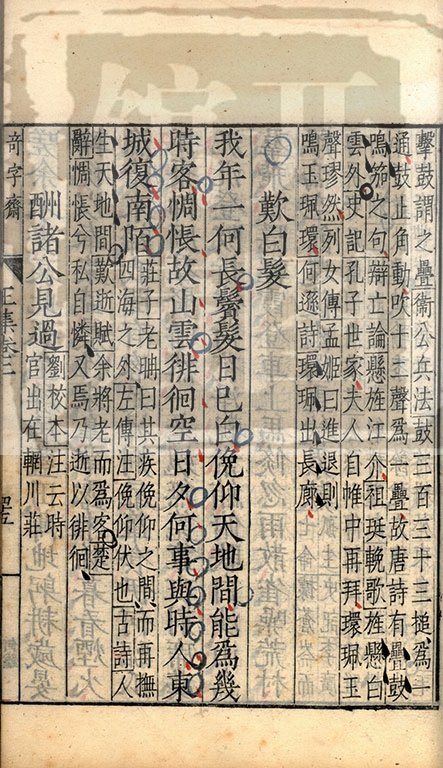 鼙鼓謂之疊衛公兵法鼓三百三十三搥爲一
通鼓止角動吹十二聲爲一疊故唐詩有疊鼓
鳴笳之句辯亡論懸旌江介祖珽輓歌旌懸白
雲外史記孔子世家夫人自帷中再拜環珮玉
聲璆然列女傳孟姬曰進退則
鳴玉珮環何遜詩環珮出長廊
歎白髮
我年一何長鬢髮日已白俛仰天地間能爲幾
時客惆悵故山雲徘徊空日夕何事與時人東
城復南陌
莊子老聃曰其疾俛仰之間而再撫
四海之外左傳注俛仰伏也古詩人
生天地間歎逝賦余將老而爲客楚
辭惆悵兮私自憐又焉乃逝以徘徊
酬諸公見過
劉校本注云時
官出在輞川莊
奇字齋
王集卷三